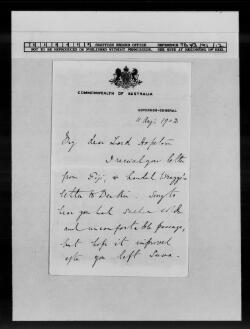 SCOTTISH RECORD OFFICE
NOT TO BE REPRODUCED WITHOUT PERMISSION.
COMMONWEALTH OF AUSTRALIA
GOVERNOR-GENERAL
11 Aug. 1902
My dear Lord Hopetoun
I received your letter
from Fiji, &
letter to Deakin. Sorry to
hear you had such a
and uncomfortable passage,
but hope it improved
after you left Suva.